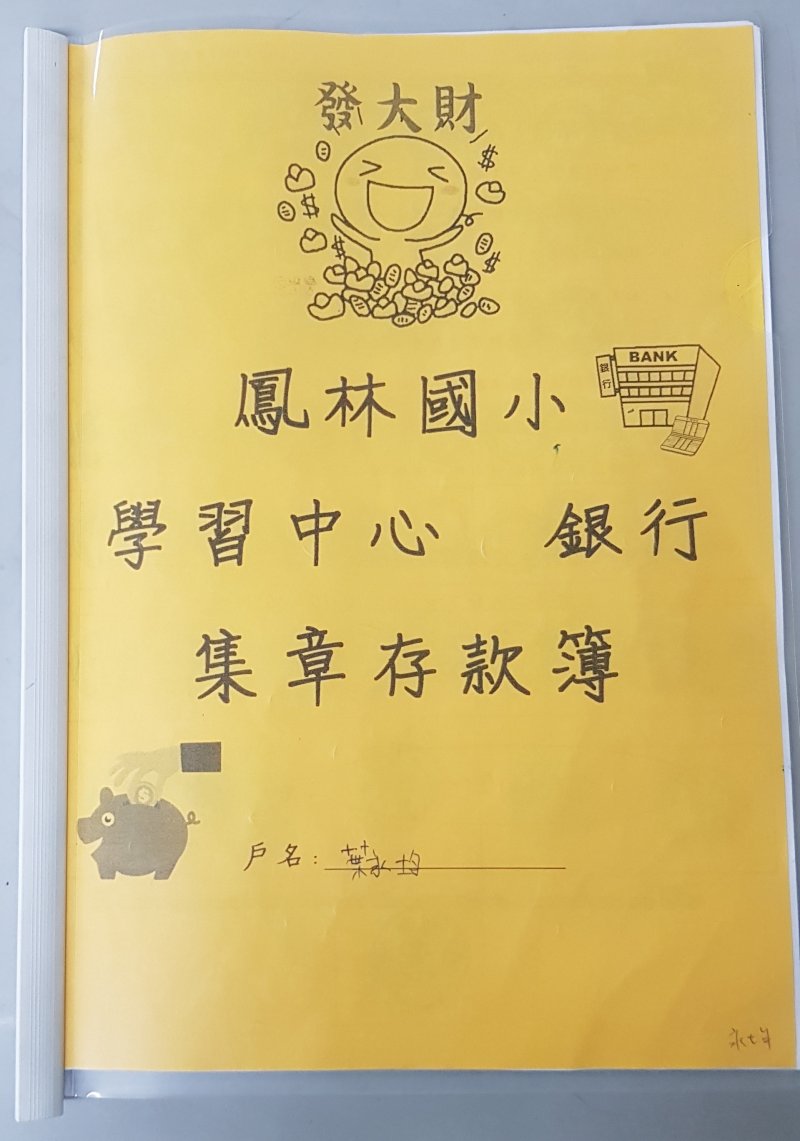 發大財
BANK
銀行
鳳林國小
學習中心 銀行
集章存款簿
戶名：葉永均